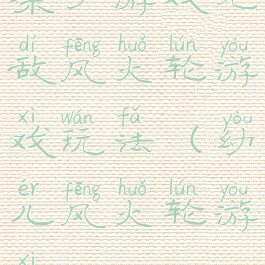 梁乡游戏无
dí fēng huǒ lún yóu
敌风火轮游
xì wán fǎ yòu
戏玩法(幼
ér fēng huǒ lún yóu
儿风火轮游
xì